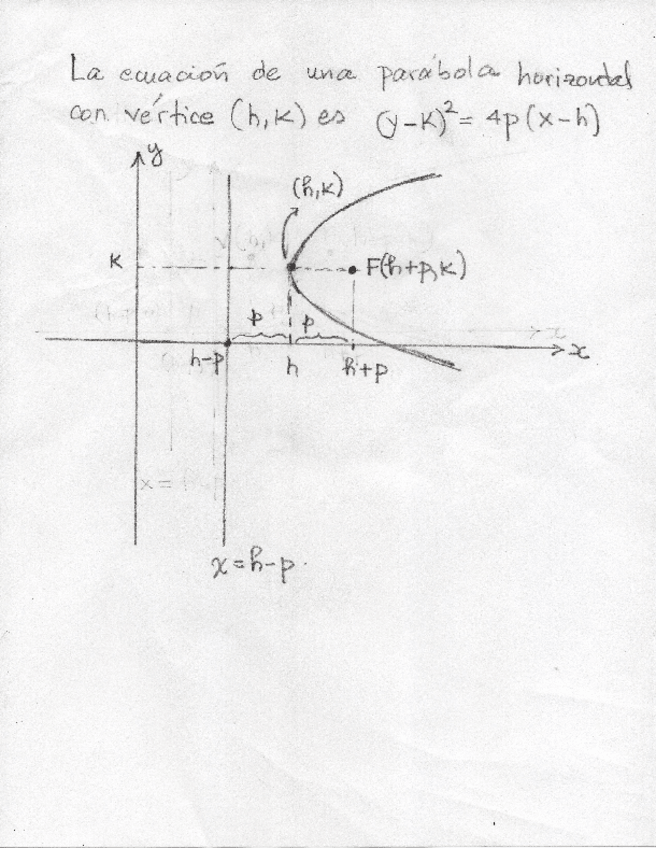 La ecuación de una parábola horizontal
con vértice (h,k) es (y-k)²= 4p(x-h)
y
(h,k)
k
F(h+p,k)
p p
x
h-p h h+p
x=h-p.